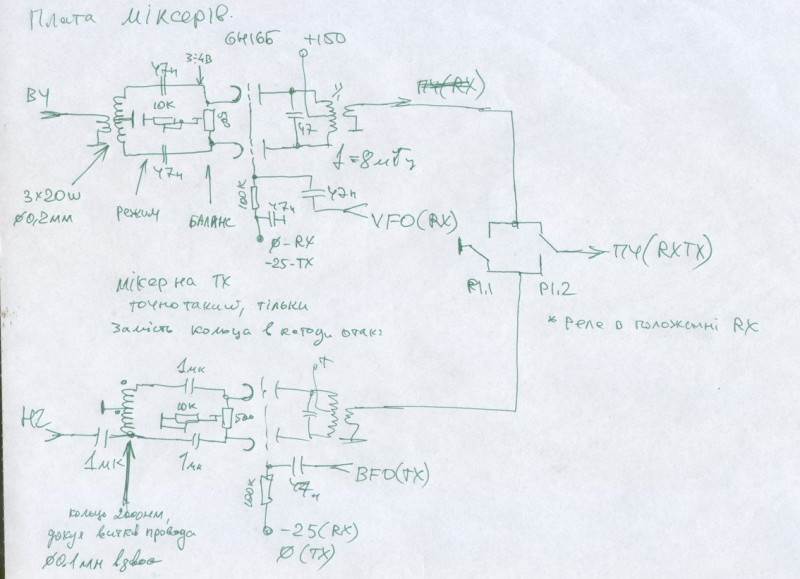 Плата міксерів.
6Н16Б +150
47н 3÷4В
ВЧ
10К
47
47н
ПЧ(RX)
f=8мгц
3x20w
Ø0,2мм
режим
БАЛАНС
100К
47н
47н
VFO(RX)
Ø-RX
-25-TX
ПЧ(RXTX)
P1.1 P1.2
* Реле в положенні RX
мікер на TX
точно такий, тільки
Замість кольца в катоди отак:
1мк
10К
500
НЧ
1мк
1мк
+
100К
47н
BFO(TX)
-25(RX)
Ø(TX)
кольцо 2000НМ,
витків провода
Ø0,1мм вдвоє